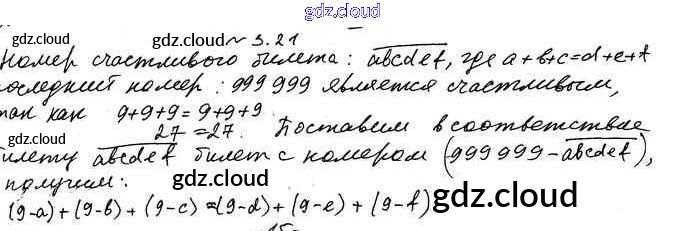 gdz.cloud
gdz.cloud
№ 3.21
Номер счастливого билета: abcdef, где a+b+c=d+e+f
последний номер: 999 999 является счастливым,
так как 9+9+9=9+9+9
gdz.cloud
gdz.cloud
27=27. Поставим в соответствие
билету abcdef билет с номером (999 999 - abcdef),
gdz.cloud
gdz.cloud
получим:
gdz.cloud
(9-a)+(9-b)+(9-c)=(9-d)+(9-e)+(9-f)
gdz.cloud